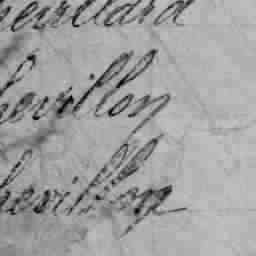 hevillard
hevillon
hevillon